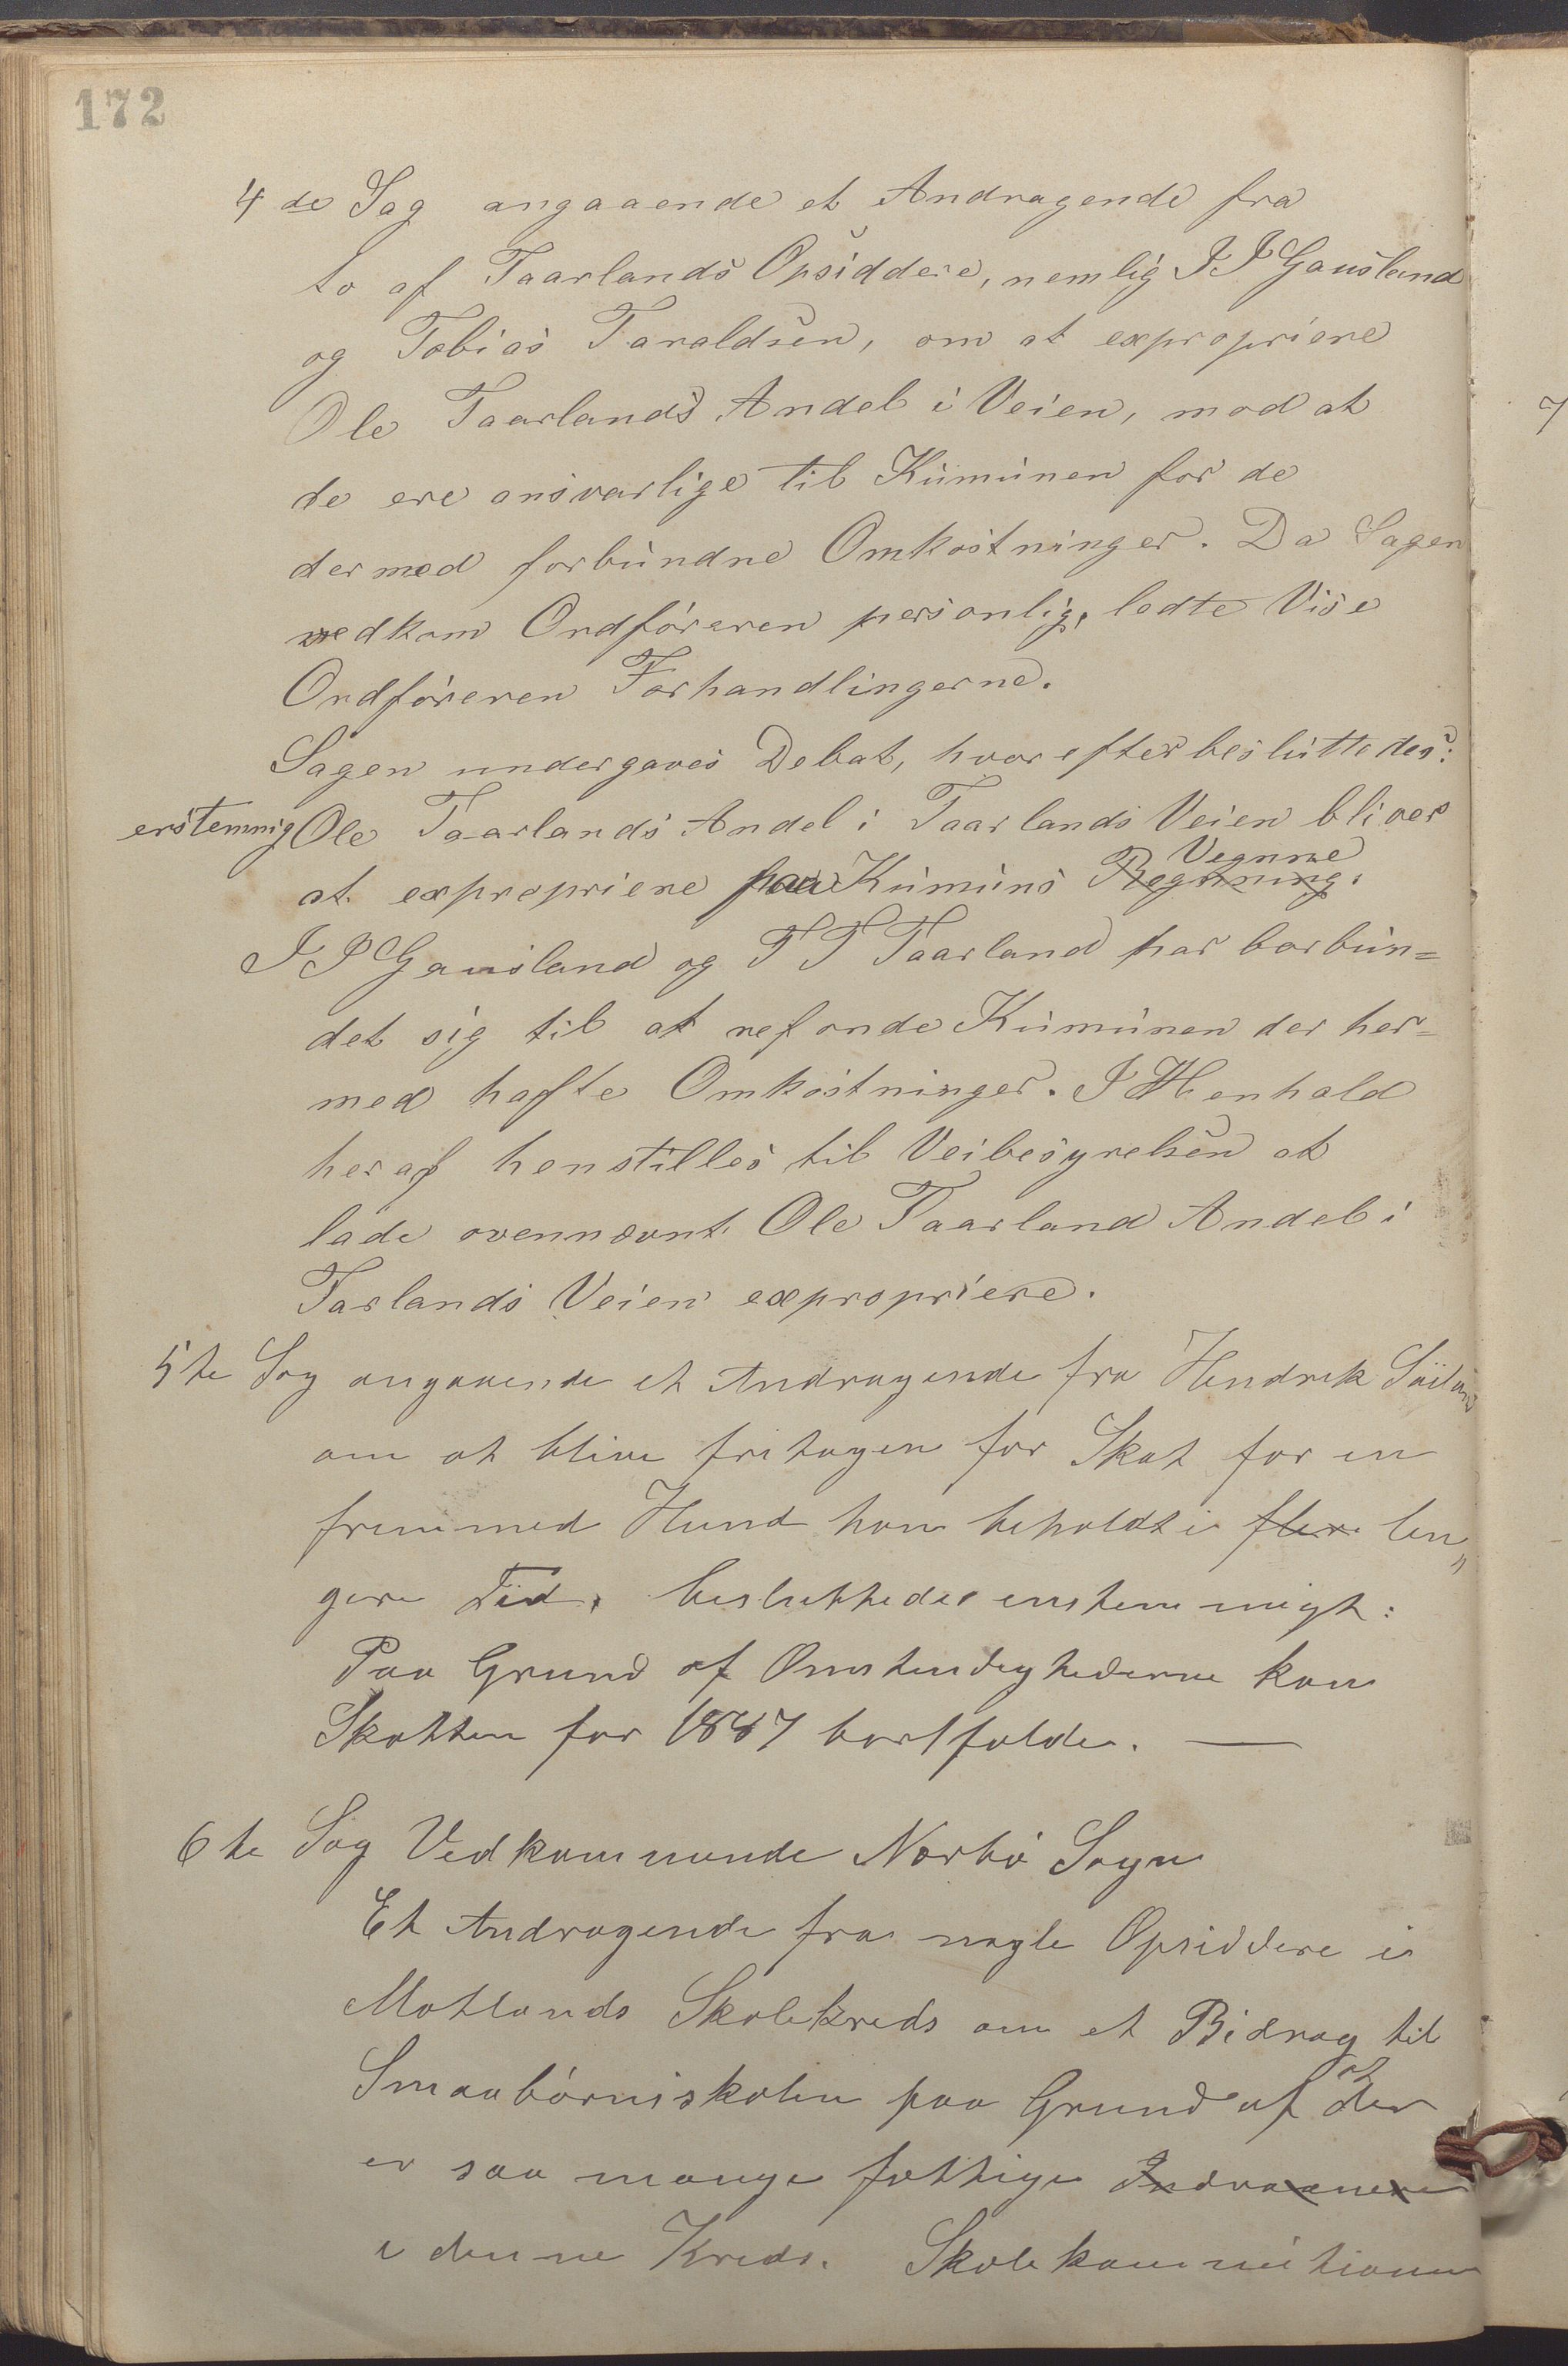 172
4 de Sag angaaende et Andragende fra
to af Taarlands Opsiddere, nemlig I I Gausland
og Tobias Taraldsen, om at expropriere
Ole Taarlands Andel i Veien, mod at
de ere ansvarlige til Kumunen for de
dermed forbundne Omkostninger. Da Sagen
vedkom Ordføreren personlig, ledte Vise
Ordføreren Forhandlingerne.
Sagen undergaves Debat, hvorefter besluttedes:
enstemmig Ole Taarlands Andel i Taarlands Veien bliver
Vegnne
at expropriere paa Kumuns Regnning.
I I Gausland og T T Taarland har borbun=
det sig til at refonde Kumunen der her=
med hafte Omkostninger. I Henhold
heraf henstilles til Veibesyrelsen at
lade ovennævnt Ole Taarland Andel i
Tarlands Veien expropriere.
5te Sag angaaende et Andragende fra Hendrek
om at blive fritagen for Skat for en
fremmed Hund han beholdt i flere len„
gere Tid, besluttedes enstemmigt:
Paa Grund af Omstendeghederne kan
Skatten for 1887 bortfalde. —
6te Sag Vedkommende Nærbø Sogn
Et Andragende fra nogle Opsiddere i
Motlands Skolekreds om et Bidrag til
Smaabørnsskolen paa Grund af at der
er saa mange fattige
i denne Kreds. Skolekommitionen